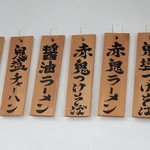 鬼塩つけそば
赤鬼ラーメン
赤鬼つけそば
醤油ラーメン
鬼塩チャーハン